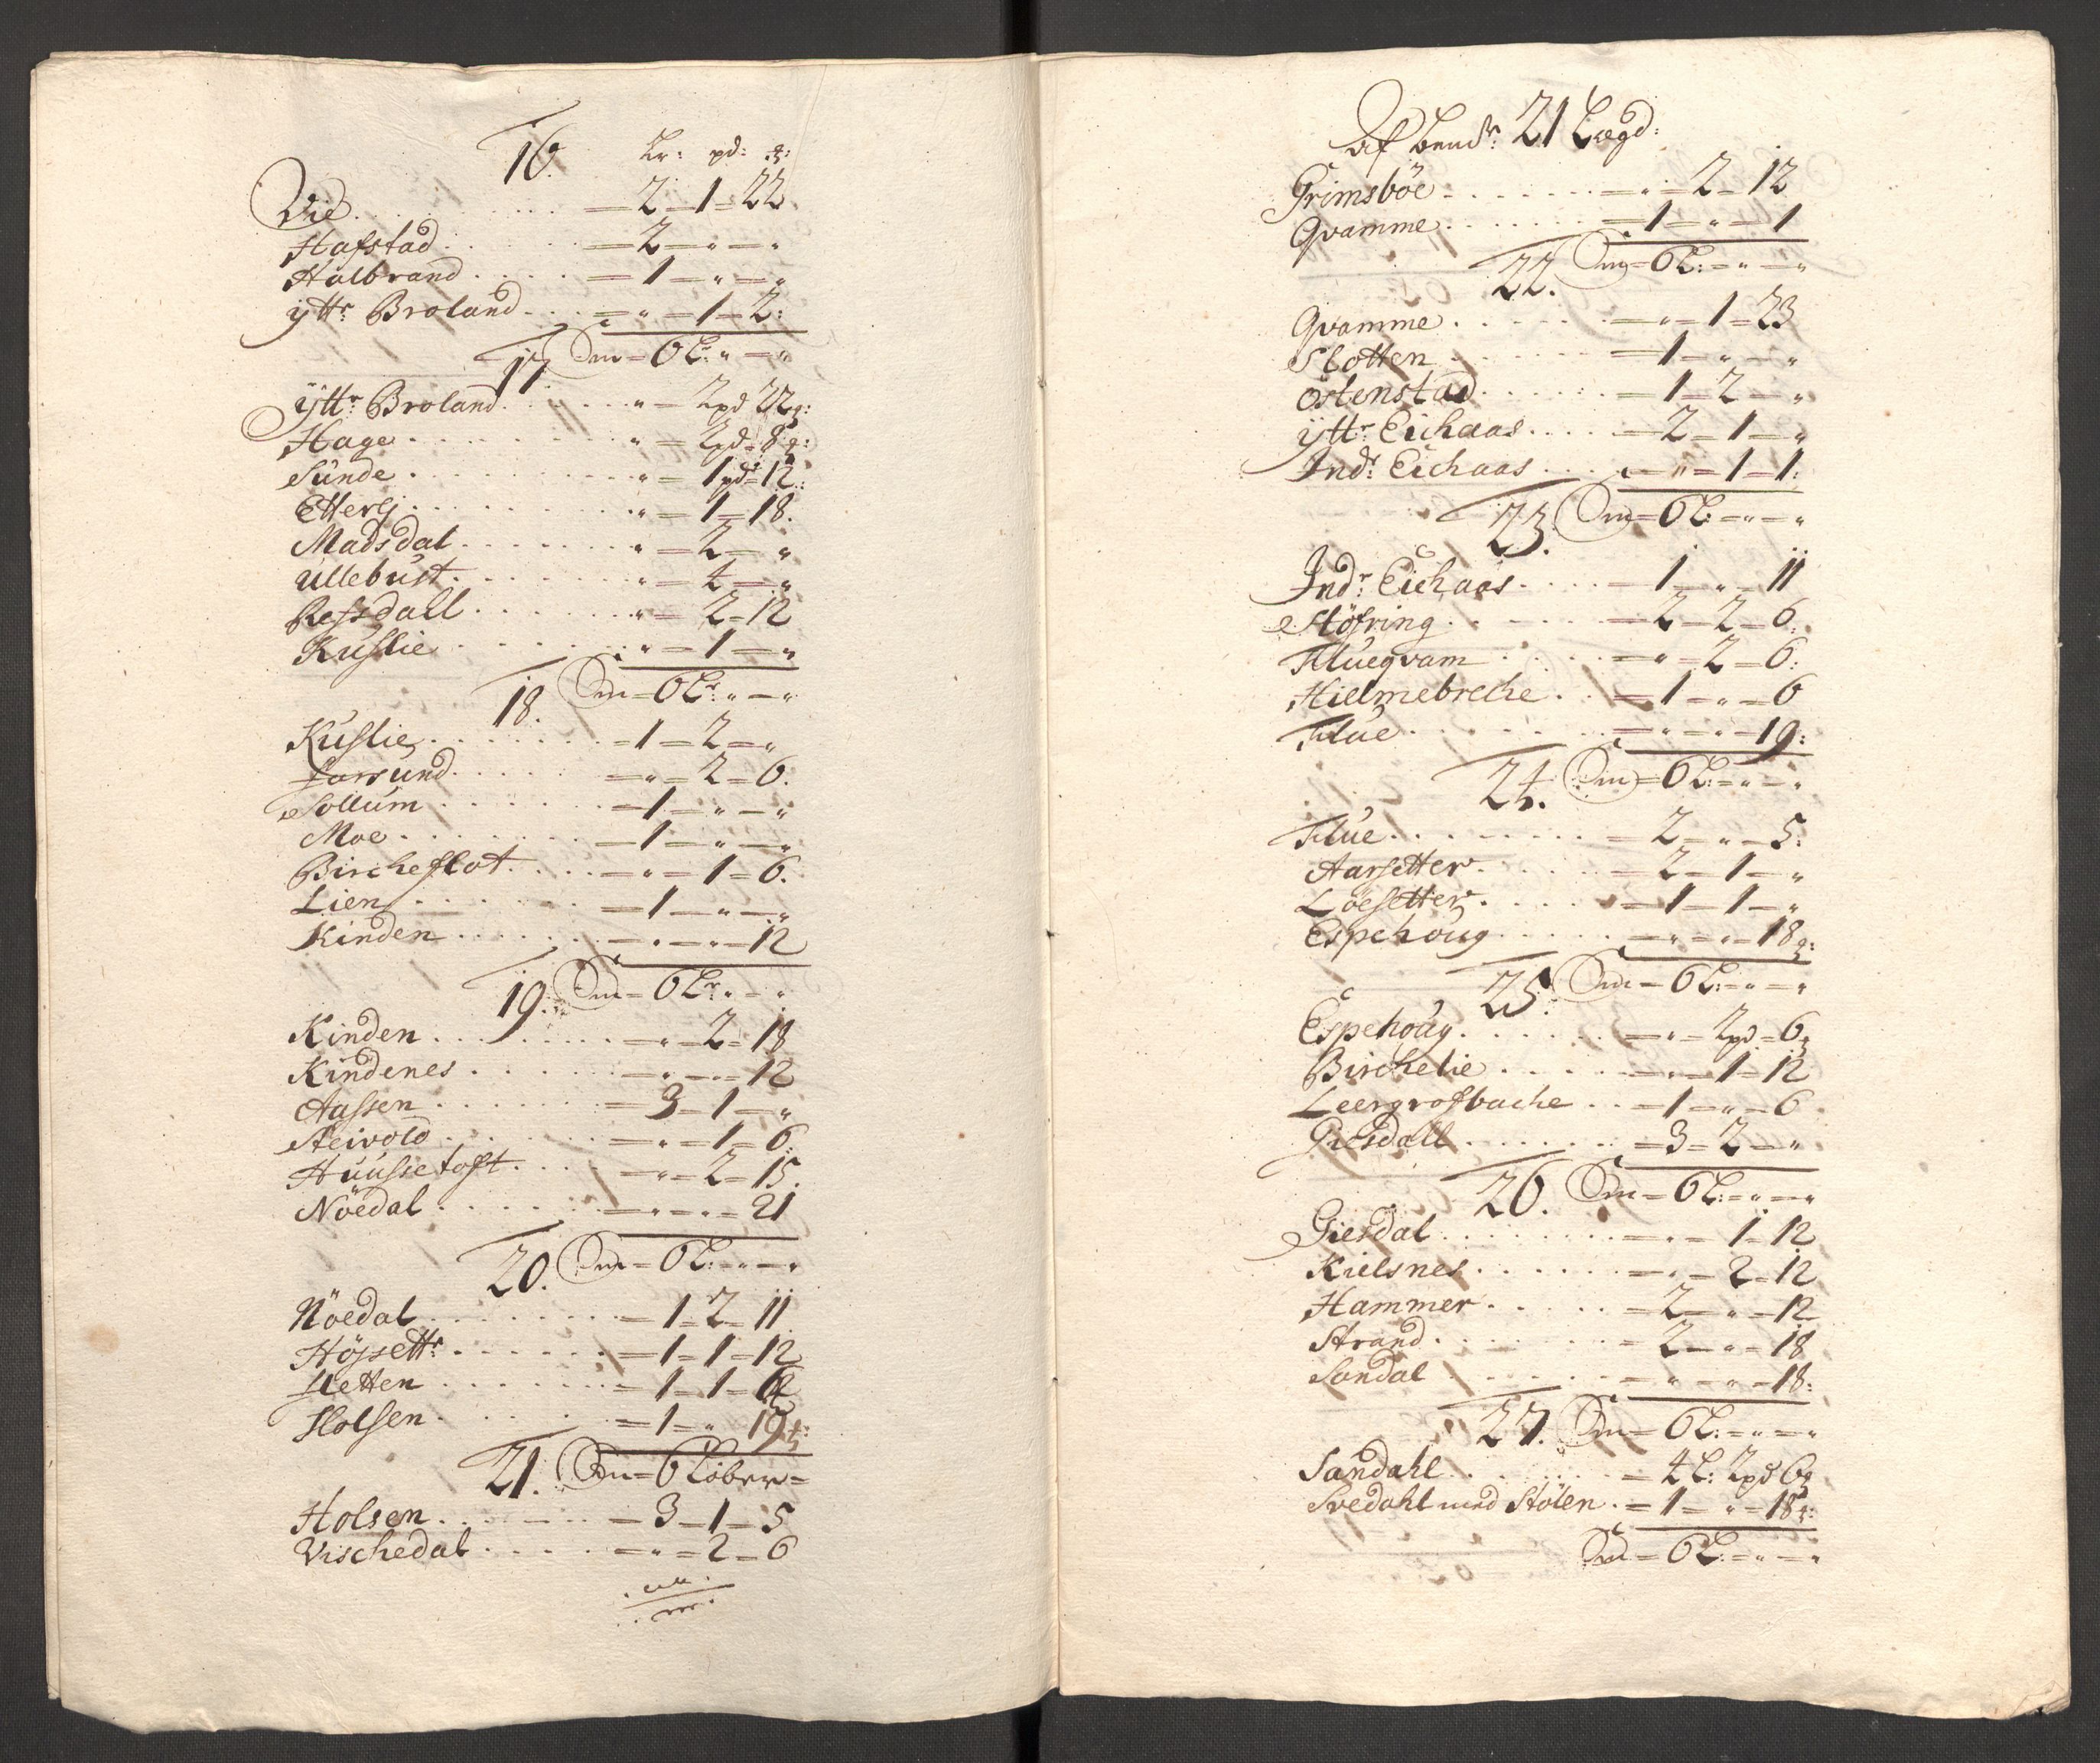 16. Lr: pd: ꝣ:
Vie . . . . . – 2 – 1 – 22.
Hafstad . . . . – 2 – " – "
Halbrand . . . . – 1 – " – "
ÿttr: Broland . . . – " – 1 – 2:
17. Sm – 6 Lr: " – "
ÿttr: Broland . . . . " – 2pd 22ꝣ:
Hage . . . . . " – 2pd – 8ꝣ:
Sunde . . . . . " – 1pd: 12:
Etterlj . . . . . " – 1 – 18.
Madsdal . . . . . " – 2 – "
Ullebust . . . . . " – 4 – "
Refsdall . . . . . " – 2 – 12
Kuslie . . . . . " – 1 – "
18. Sm – 6 Lr: " – "
Kuslie . . . . . – 1 – 2 – "
Farsund . . . . – " – 2 – 6.
Sollum . . . . – 1 – " – "
Moe . . . . . – 1 – " – "
Bircheflot . . . . – " – 1 – 6.
Lien . . . . . – 1 – " – "
Kinden . . . . . – " – " – 12
19. Sm – 6 Lr: " – "
Kinden . . . . . – " – 2 – 18
Kindenes . . . . . – " – " – 12
Aassen . . . . . – 3 – 1 – "
Neivold . . . . . – " – 1 – 6
Huussetoft . . . . – " – 2 – 15.
Nöedal . . . . . – " – " – 21
20. Sm – 6 L: – " – "
Nöedal . . . . . – 1 – 2 – 11
Höjsettr: . . . . . – 1 – 1 – 12
Sletten . . . . . – 1 – 1 – 6
Holsen . . . . . – 1 – " 19ꝣ:
21. Sm – 6 Löber –
Holsen . . . . . – 3 – 1 – 5
Vischedal . . . . – " – 2 – 6
Af bemdte: 21 Lægd:
Grimsböe . . . . . – " – 2 – 12
Qvamme . . . . . – 1 – " – 1
22. Sm – 6 L: – " – "
Qvamme . . . . . – " – 1 – 23
Slotten . . . . . – 1 – " – "
Östenstad . . . . . – 1 – 2 – "
ÿttr: Eichaas . . . . – 2 – 1 – "
Indr: Eichaas . . . . – " – 1 – 1:
23. Sm – 6 L: – " – "
Indr: Eichaas . . . . – 1 – " – 11
Stöfring . . . . . – 2 – 2 – 6:
Fluegvam . . . . . – " – 2 – 6:
Hielmebreche . . – 1 – " – 6
Flue . . . . . – " – " – 19:
24. Sm – 6 L: – " – "
Flue . . . . . – 2 – " – 5:
Aarsetter . . . . . – 2 – 1 – "
Löesetter . . . . . – 1 – 1 – "
Espehoug . . . . . – " – " – 18ꝣ:
25. Sm – 6 L: – " – "
Espehoug . . . . . – " – 2pd – 6ꝣ
Birchelie . . . . . – " – 1 – 12
Leergrofbache . . – 1 – " – 6.
Giesdall . . . . . – 3 – 2 – "
26. Sm – 6 L: – " – "
Giesdal . . . . . – " – 1 – 12
Kielsnes . . . . . – " – 2 – 12
Hammer . . . . . – 2 – " – 12
Strand . . . . . – 2 – " – 18
Sandal . . . . . – " – " – 18:
27. Sm – 6 L: – " – "
Sandahl . . . . . – 4 L: 2pd 6ꝣ
Svedahl med Stölen . – 1 – " – 18ꝣ:
Sm – 6 L: – " – "